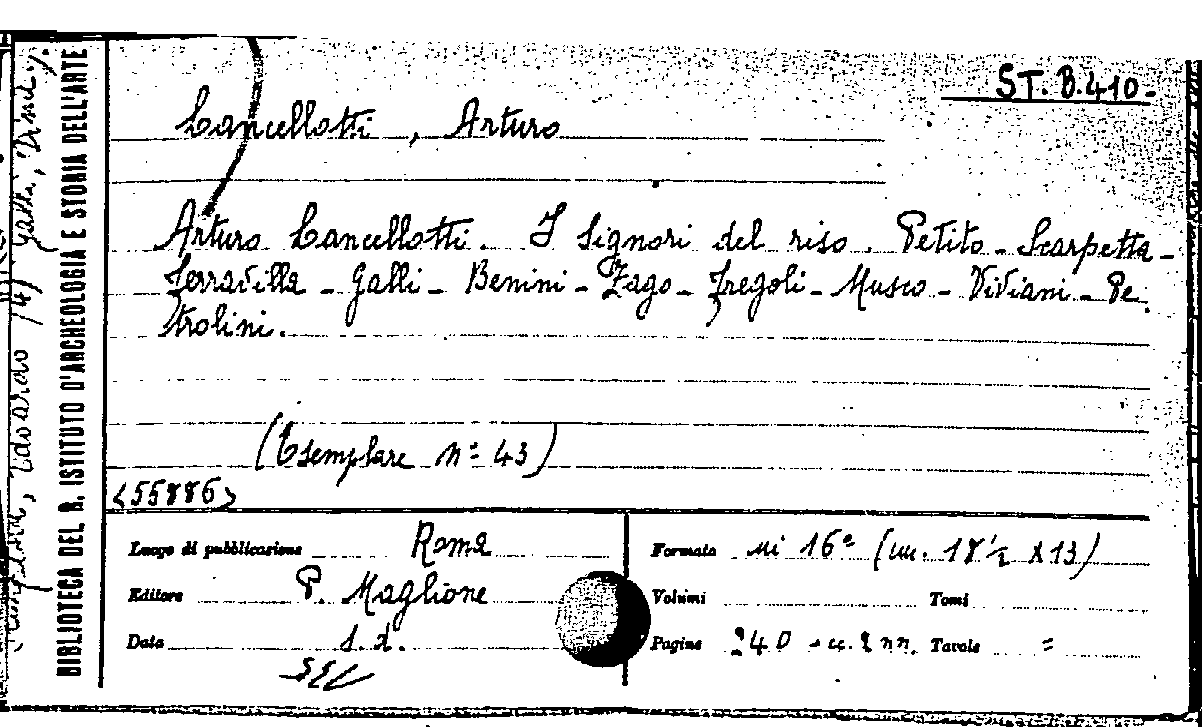 ST. B. 410-
Cancellotti, Arturo
Arturo Cancellotti. I Signori del riso. Petito - Scarpetta -
Ferravilla - Galli - Benini - Zago - Fregoli - Musco - Viviani - Pe
trolini.
(Esemplare n° 43)
<55886>
Luogo di pubblicazione Roma
Editore P. Maglione
Data s. d.
Formato in 16° (cm. 18½ x 13)
Volumi Tomi
Pagine 240 Tavole =
BIBLIOTECA DEL R. ISTITUTO D'ARCHEOLOGIA E STORIA DELL'ARTE
Edoardo (4) Galli, Dina